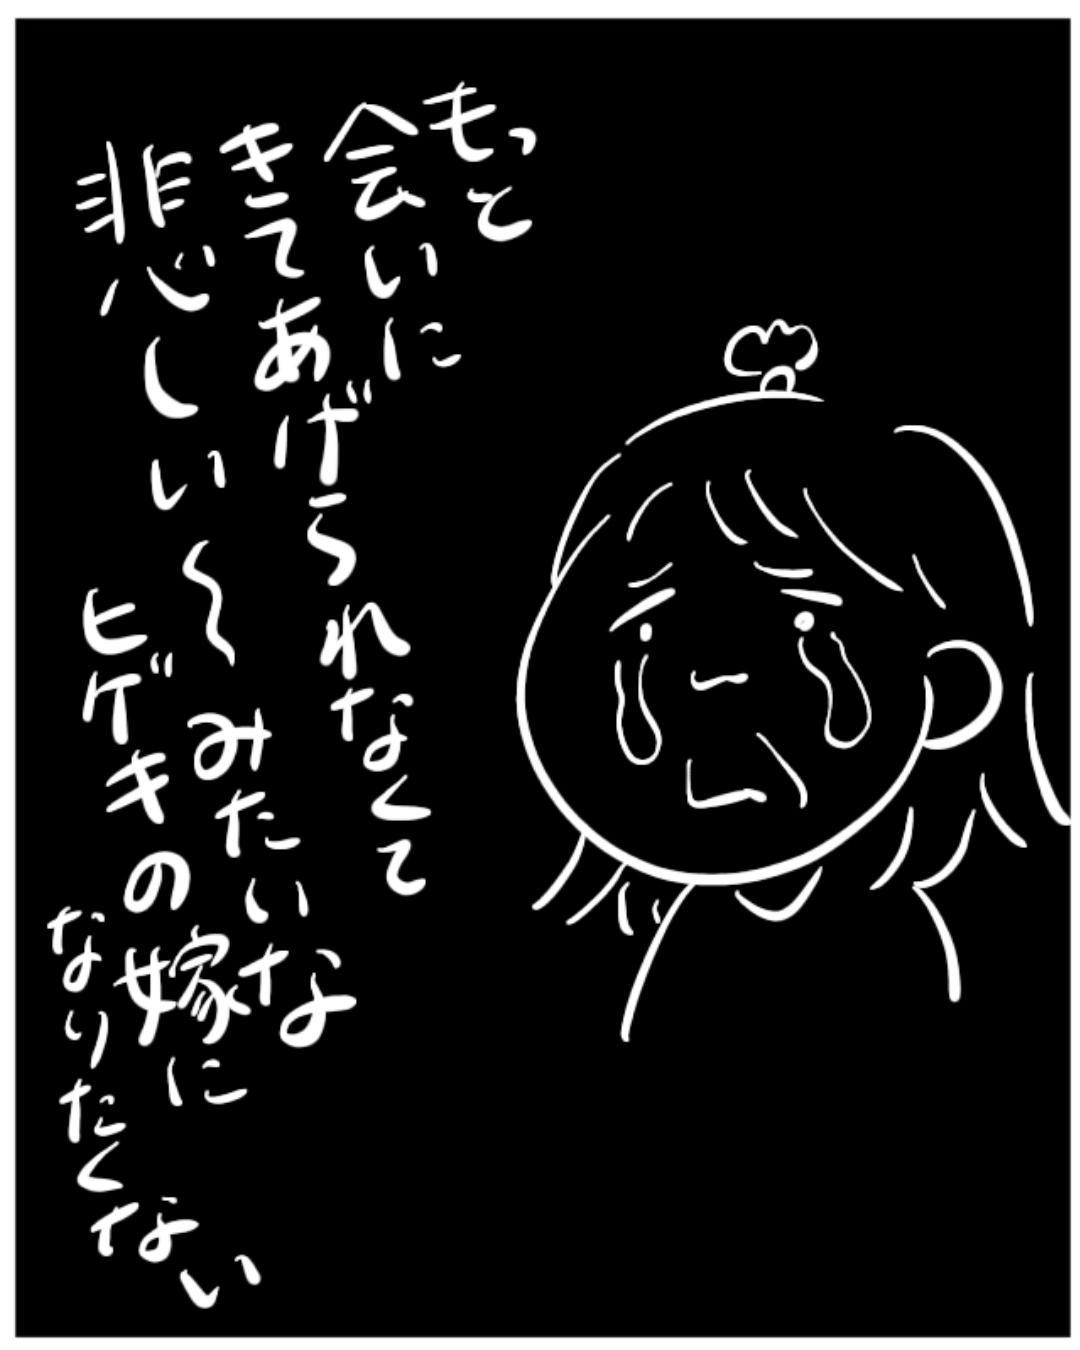 もっと
会いに
きてあげられなくて
悲しい〜みたいな
ヒゲキの嫁に
なりたくない